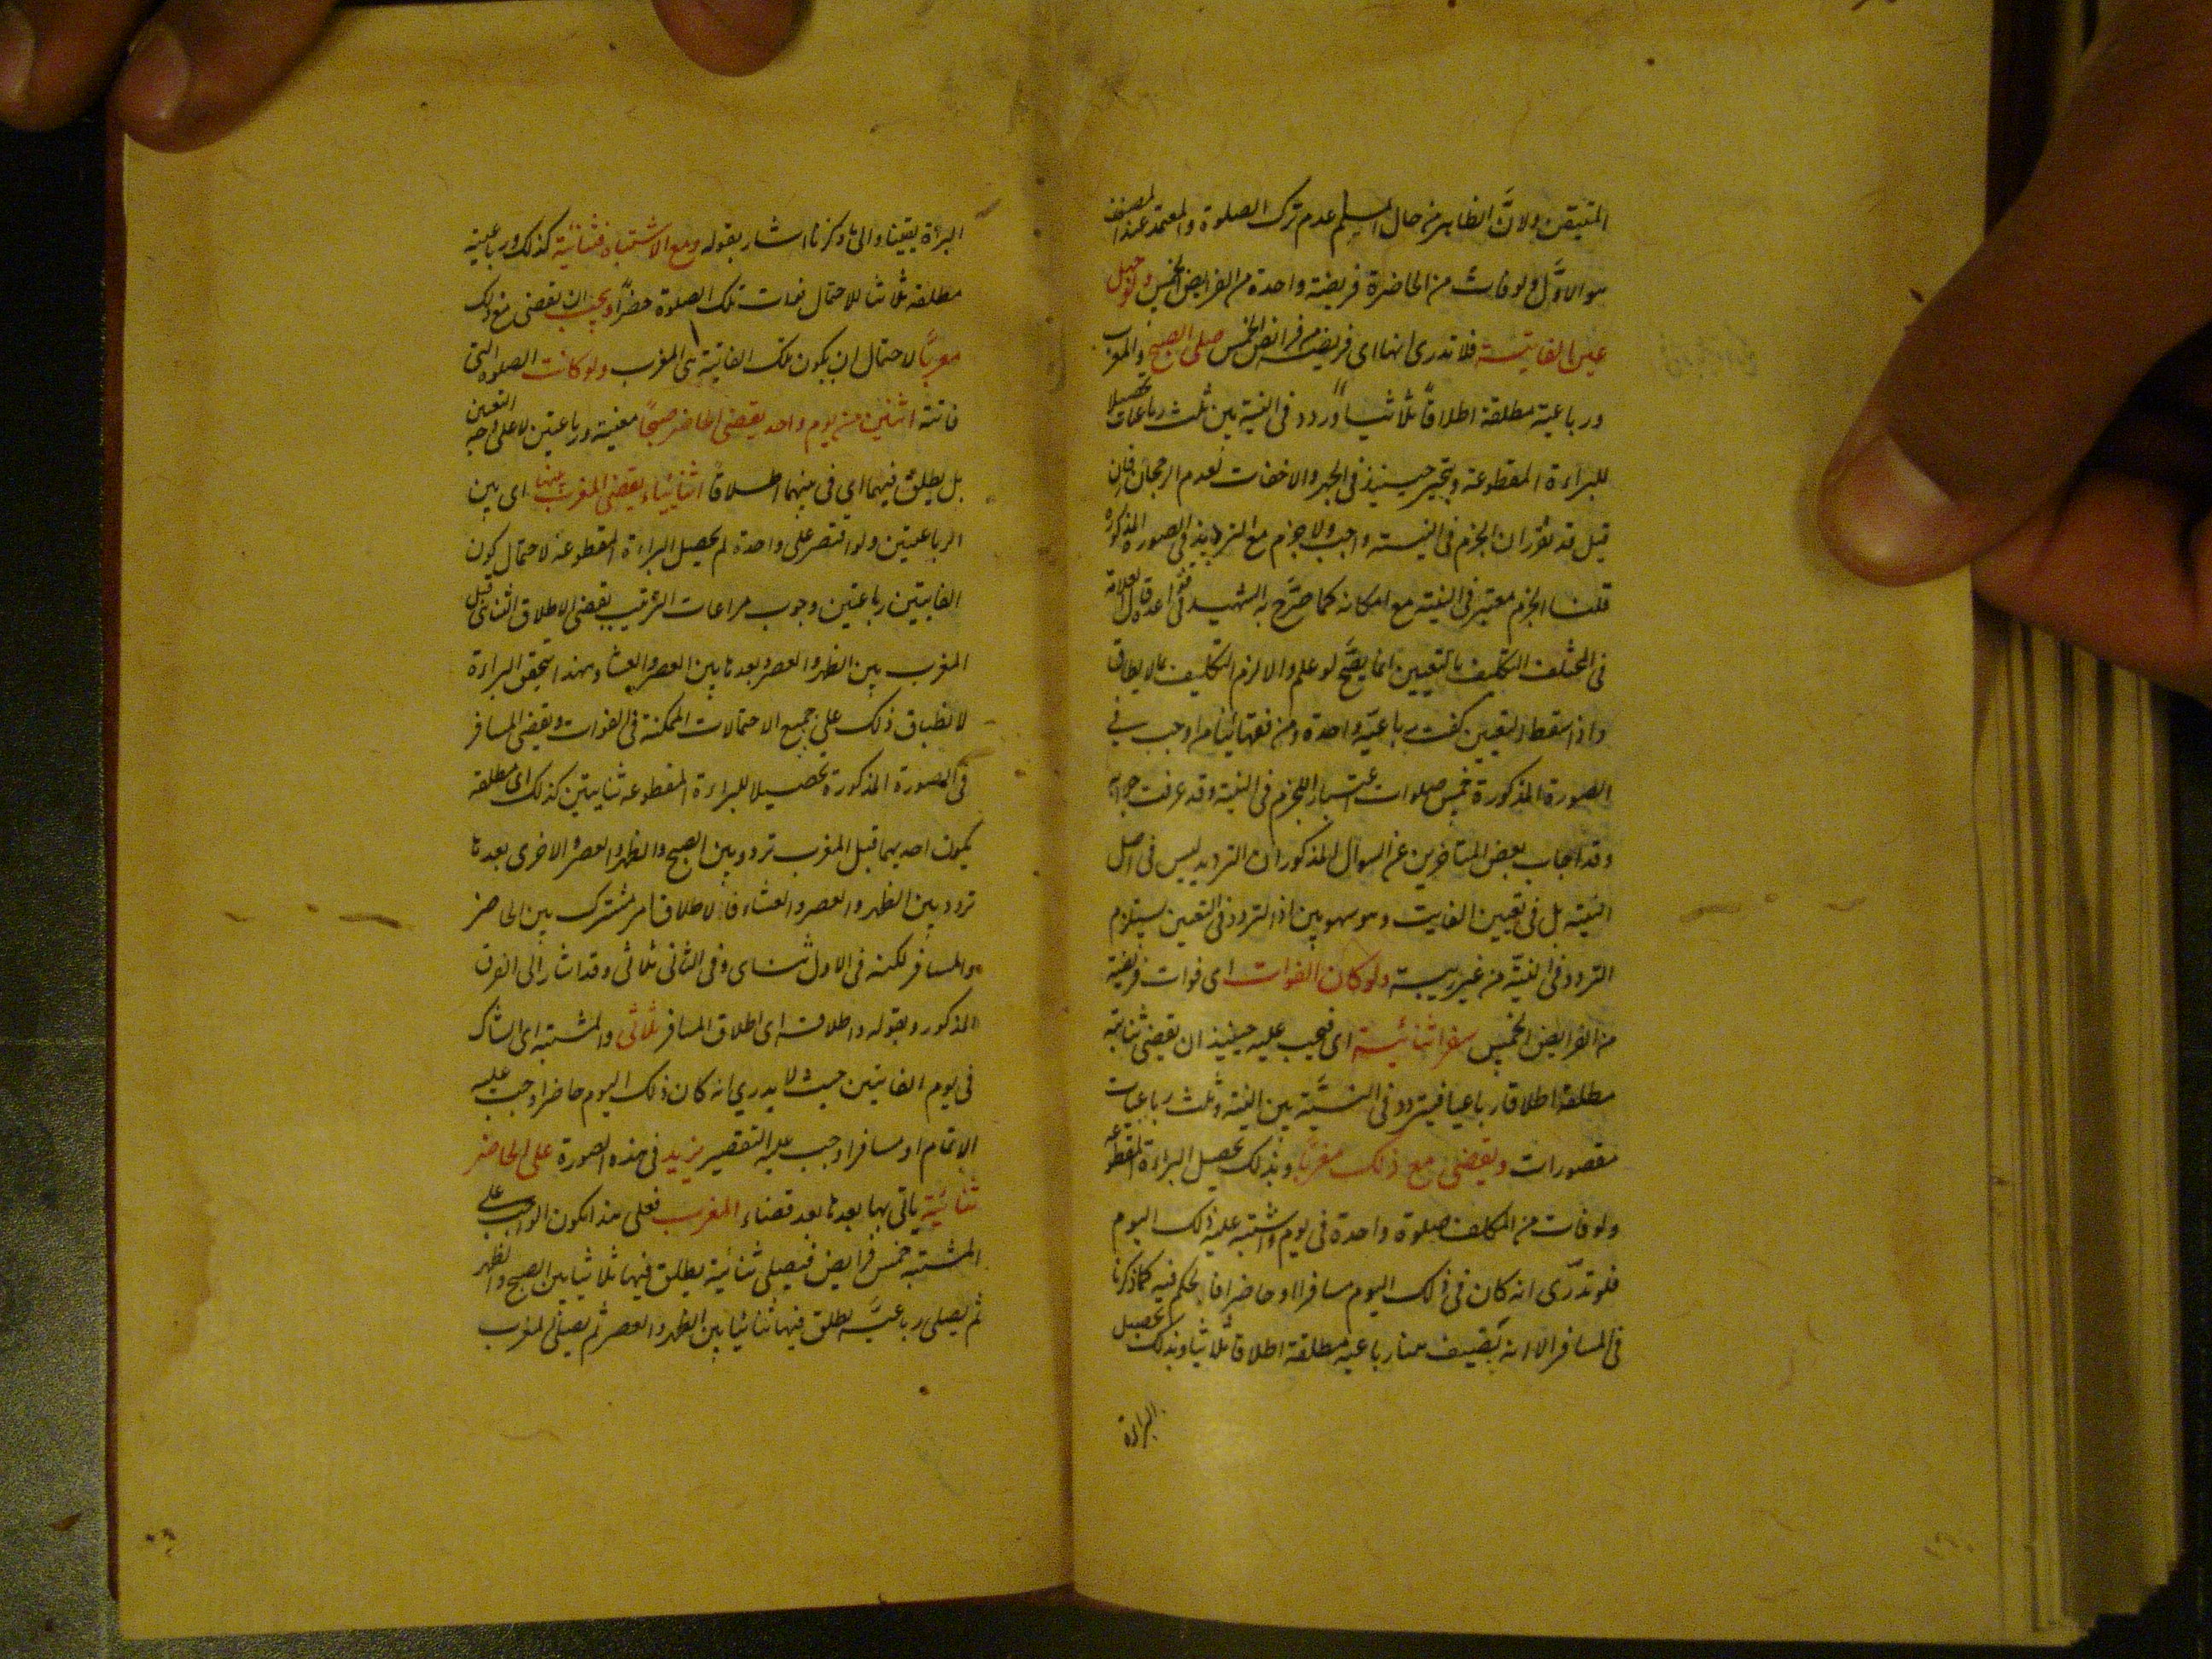 المتيقن ولانّ الظاهر من حال المسلم عدم ترك الصلوة والمعتمد عند المصنف
هو الاوّل ولو فات من الحاضرة فريضة واحدة من الفرايض الخمس ولو جهل
عين الفايتة فلا تدرى انها اى فريضة من فرائض الخمس صلى الصبح والمغرب
ورباعية مطلقة اطلاقاً ثلاثياً وردد فى النية بين ثلث رباعات تحصيلا
للبراءة المقطوعة ويتخير حينئذ فى الجهر والاخفات لعدم الرجحان فان
قيل قد تقرر ان الجزم فى النية واجب ولا جزم مع الترديد فى الصورة المذكورة
قلنا الجزم معتبر فى النية مع امكانه كما صرّح به الشهيد فى قواعده قال العلامة
فى المختلف التكليف بالتعيين انما يصحّ لو علم والا لزم التكليف بما لا يطاق
واذا سقط التعيين كفت رباعية واحدة ومن فقهائنا من اوجب فى
الصورة المذكورة خمس صلوات اعتبار للجزم فى النية وقد عرفت جوابه
وقد اجاب بعض المتاخرين عن السوال المذكور ان الترديد ليس فى اصل
النية بل فى تعيين الفايت وهو سهو بين اذ التردد فى التعين يستلزم
التردد فى النيّة من غير ريبة ولو كان الفوات اى فوات فريضة
من الفرايض الخمس سفرا ثنائية اى فيجب عليه حينئذ ان يقضى ثنائية
مطلقة اطلاقا رباعيا فيتردد فى النيّة بين الثنية وثلث رباعيات
مقصورات ويقضى مع ذلك مغربا وبذلك يحصل البراءة المقطوعة
ولو فات من المكلف صلوة واحدة فى يوم واشتبه عليه ذلك اليوم
فلو تدرى انه كان فى ذلك اليوم مسافرا او حاضرا فالحكم فيه كما ذكرنا
فى المسافر الا انه يضيف هنا رباعية مطلقة اطلاقا ثلاثيا وبذلك تحصيل
البراءة
البراءة يقينا والى ما ذكرنا اشار بقوله ومع الاشتباه فثنائية كذلك ورباعية
مطلقة ثلاثا للاحتمال فوات تلك الصلوة حضرًا ويجب ان يقضى مع ذلك
مغربًا لاحتمال ان يكون تلك الفائتة هى المغرب ولو كانت الصلوة التى
فائتة اثنين من يوم واحد يقضى الحاضر صبحًا معينة ورباعتين لا على وجه التعين
بل يطلق فيهما اي فى نيتهما اطلاقًا اثنائيا ويقضى المغرب بينهما اى بين
الرباعيتين ولو اقتصر على واحدة لم يحصل البراءة المقطوعة لاحتمال كون
الفايتين رباعتين وجوب مراعات الترتيب يقضى الاطلاق الثنائى قبل
المغرب بين الظهر والعصر وبعدها بين العصر والعشاء وبهذا يتحقق البراءة
لانطباق ذلك على جميع الاحتمالات الممكنة فى الفوات ويقضى المسافر
فى الصورة المذكورة تحصيلا للبراءة المقطوعه ثنايتين كذلك اى مطلقة
يكون احديهما قبل المغرب تردد بين الصبح والظهر والعصر والاخرى بعدها
تردد بين الظهر والعصر والعشاء فالاطلاق امر مشترك بين الحاضر
والمسافر لكنه فى الاول ثناى وفى الثانى ثلاثى وقد اشار الى الفرق
المذكور وبقوله واطلاقه اى اطلاق المسافر ثلاثى والمشتبه اى الشاك
فى يوم الفايتين حيث لا يدري انه كان ذلك اليوم حاضرا وجب عليه
الاتمام او مسافرا وجب عليه التقصير يزيد فى هذه الصورة على الحاضر
ثنائية ياتى بها بعدها بعد قضاء المغرب فعلى هذا يكون الواجب على
المشتبه خمس فرايض فيصلى ثنائية يطلق فيها ثلاثيا بين الصبح والظهر
ثم يصلى رباعيّة يطلق فيها ثنائيا بين الظهر والعصر ثم يصلى المغرب